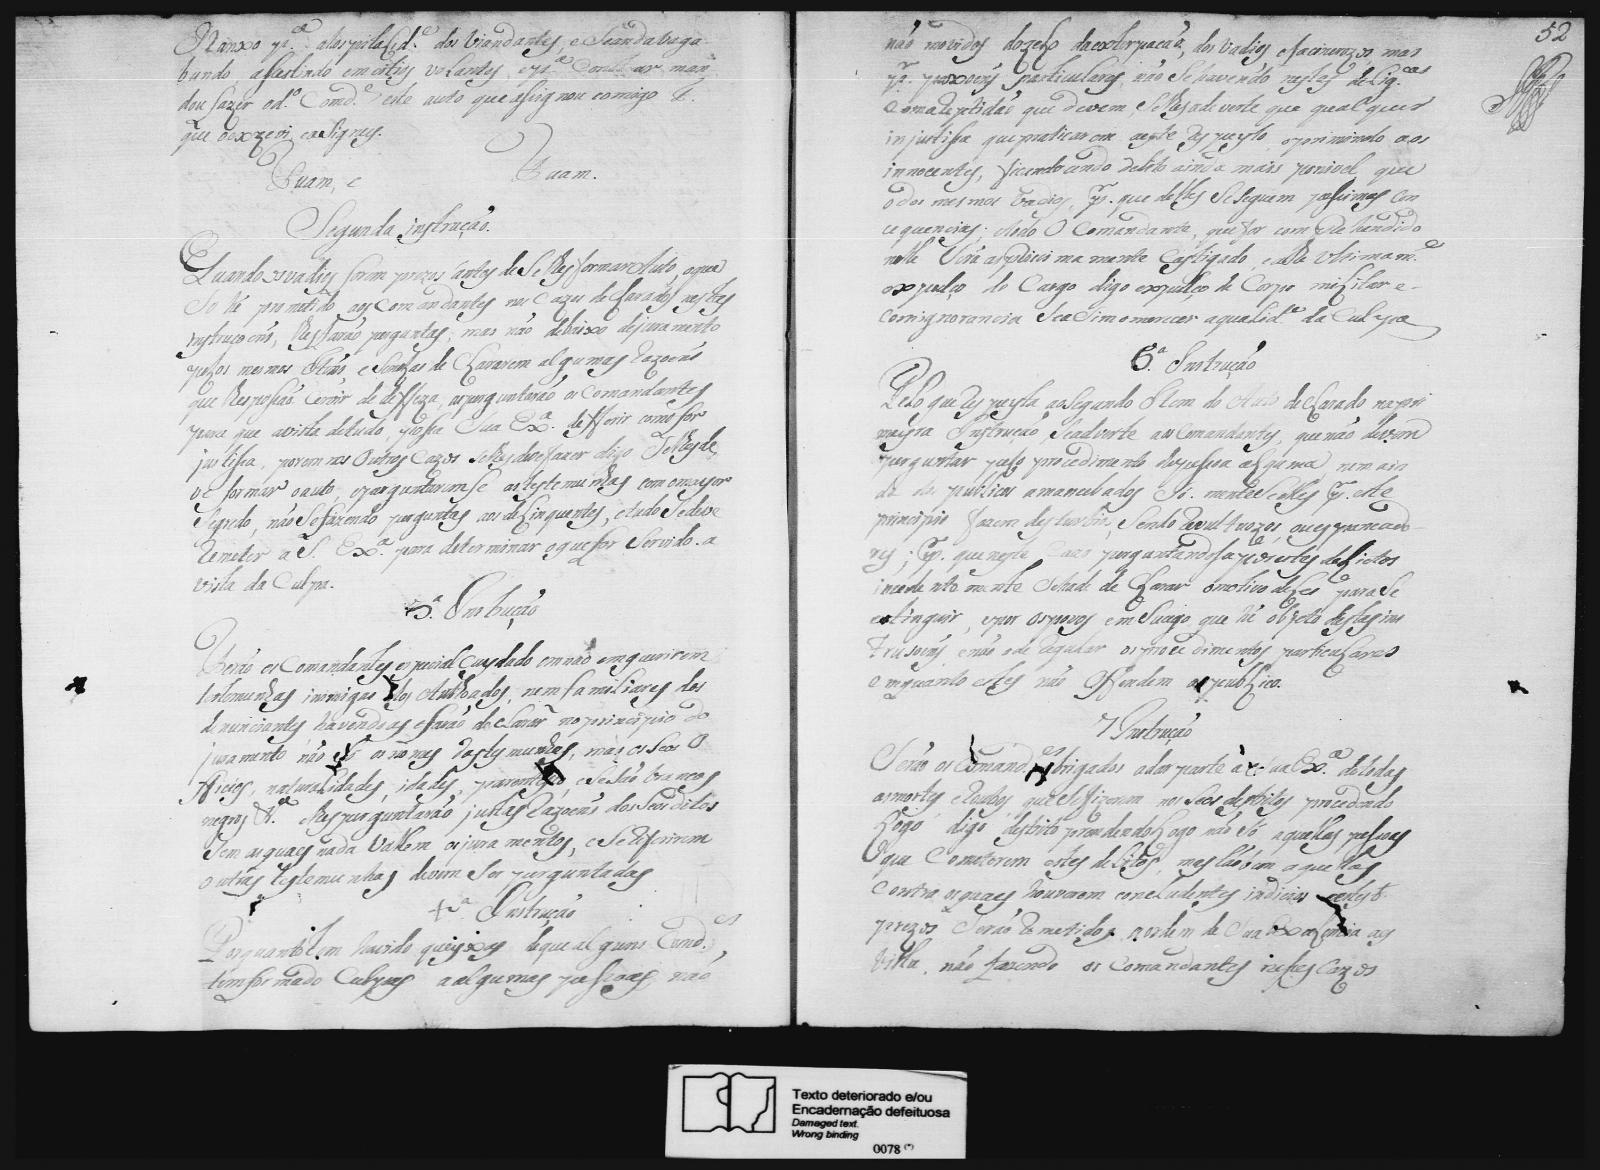 Rancho p.ª a hospitalid.e dos Viandantes, e Scanda vaga-
bundo, asestindo em citios volantes, e p.ª Constar man-
dou fazer o d.º Comd.e este auto que asignou comigo F.
que o escrevi, e asigney.
Fuam, e Fuam.
Segunda instrução.
Quando os vadios forem prezos antes de Se lhes formar Auto, o que
So hé premetido aos Comandantes nos Cazos declarados nestas
instruçoens, lhes farão perguntas, mas não debaixo de juramento
pelos mesmos Itens e Senelles declararem algumas Razoens
que lhes possão Servir de deffeza, as perguntarão os Comandantes
para que a vista de tudo, possa Sua Ex.ª defferir como for
justiça, porem nos Outros Cazos se lhes deve fazer digo Se lhes de-
ve formar o auto, e perguntaremse as testemunhas com o mayor
Segredo, não Se fazendo perguntas aos delinquentes, e tudo Se deve
Remeter a S. Ex.ª para determinar o que for Servido. a
vista da Culpa.
3.ª Instrução
Terão os Comandantes especial Cuydado em não enquerirem
testemunhas inimigas dos Autoados, nem familiares dos
denunciantes havendoas e farão declarar no principio do
juramento não só os nomes das testemunhas, mas os Seos O
fficios, naturalidades, idades, parentesco, e se São brancos
negros &.ª e lhes perguntarão justas Razoens dos Seos ditos
Sem as quaes nada Vallem os juramentos, e Se Referirem
outras testemunhas devem Ser perguntadas
4.ª Instrução
Porquanto tem havido queixas de que alguns Comd.es
tem formado Culpas a algumas pessoas, não
52
não movidos do zelo da extirpacão, dos Vadios e facinorozos mas
p.r payxoens particulares, não Se havendo nestas delig.cas
com a Retidão que devem, Se lhes adeverte que qual quer
injustiça que praticarem a este Respeyto, oprimindo aos
innocentes, ficando sendo delito ainda mais punivel que
o dos mesmos Vadios, p.r que delles Se Seguem pessimas Con
cequencias; e todo O Comandante, que for comprehendido
nelle Será aspirissimamente Castigado, e alta Ultimam.e
expulço do Cargo digo expulço do Corpo militar e
com ignorancia Se asim o merecer a qualid.e da Culpa
6.ª Instrução
Pelo que Respeyta ao Segundo Item do Auto declarado na pri
meyra Instrucão, Se adverte aos Comandantes, que não devem
perguntar pelo procedimento de pessoa alguma nem ain
da de publicos amancebados Só mente Se elles p.r este
principio fazem desturbios, Sendo Revultuozos, ou espancado
res; p.r que neste Cazo perguntandose por estes delictos
incedentemente Se hade declarar o motivo delles para Se
extinguir, e por os povos em Sucego que hé objeto destas ins
trusoens e não o de Regular os procedimentos particulares
enquanto estes não Offendem ao publico.
7 Instrução
Serão os Comand.es obrigados a dar parte a Sua Ex.ª de todas
as mortes e Roubos, que Se fizerem nos Seos destritos procedendo
Logo digo destrito prendendo Logo não Só aquellas pessoas
que Cometerem estes delitos, mas tãobem aquellas
Contra as quaes houverem concludentes indicios e estes
prezos Serão Remetidos, a ordem de Sua Excelencia as
Villa, não fazendo os Comandantes nestes Cazos
Texto deteriorado e/ou
Encadernação defeituosa
Damaged text.
Wrong binding
0078 (*)